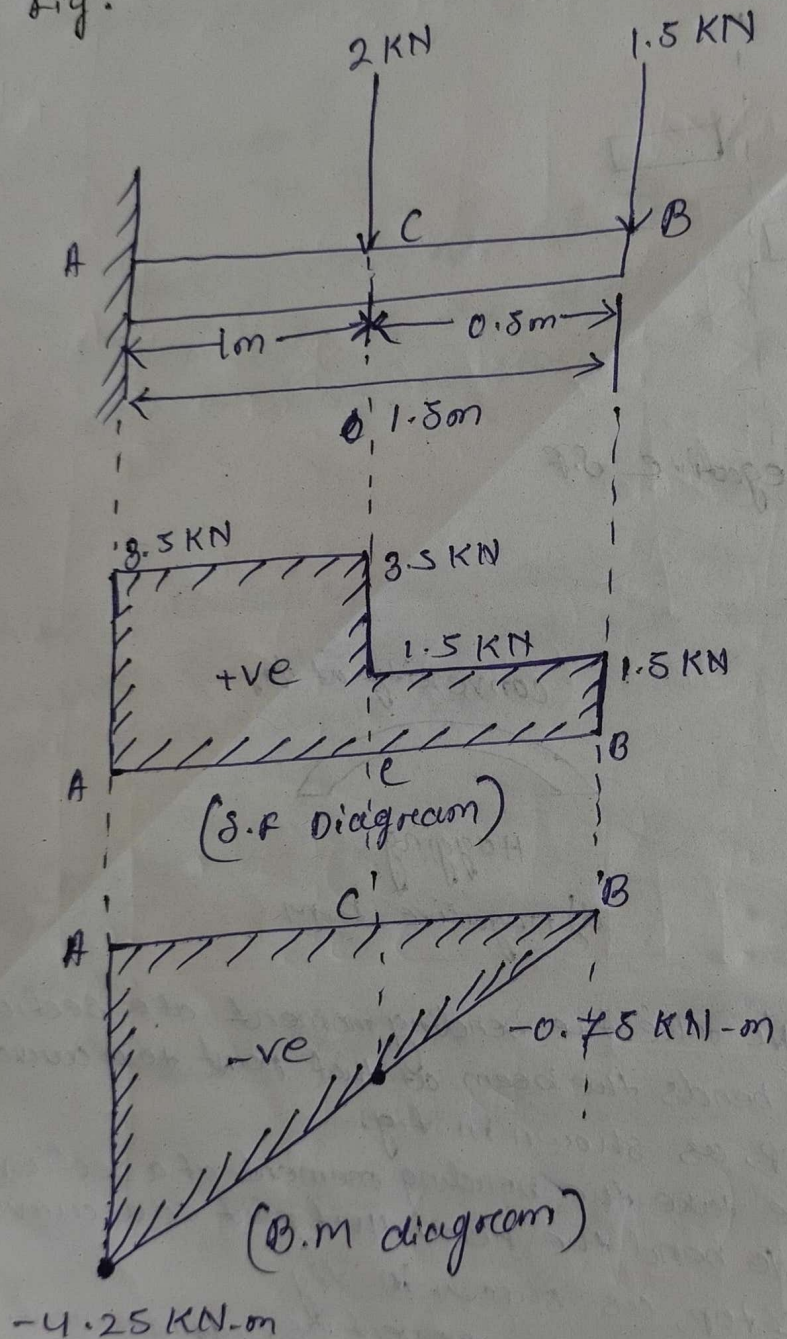 Fig.
2 KN
1.5 KN
A
C
B
1m
0.5m
1.5m
3.5 KN
3.5 KN
1.5 KN
1.5 KN
+ve
A
C
B
(S.F Diagram)
A
C
B
-ve
-0.75 KN-m
(B.M diagram)
-4.25 KN-m